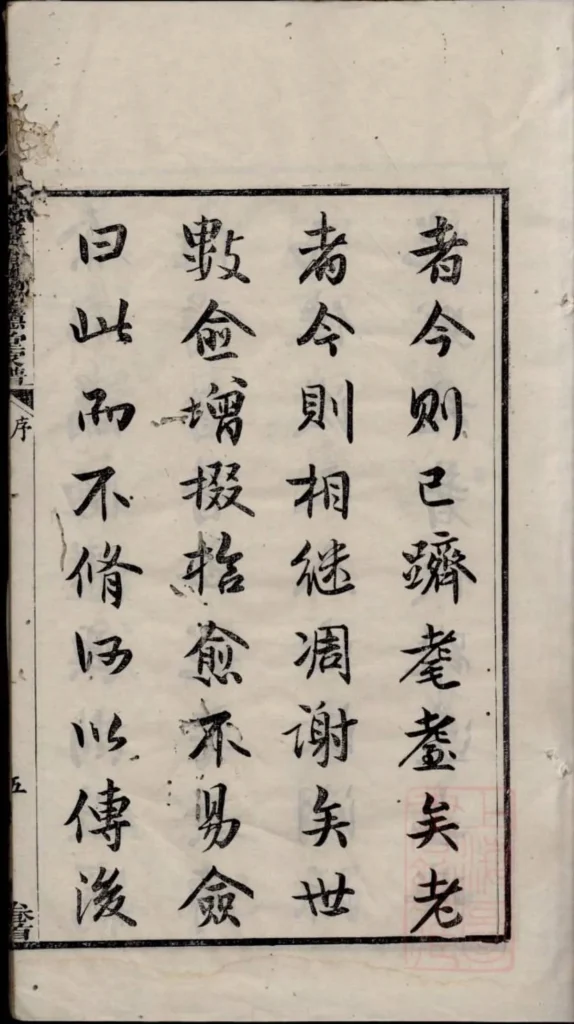 者今则已躋耄耋矣老
者今則相继凋谢矣世
數愈增掇拾愈不易僉
曰此而不脩何以傳後
序
五
卷首